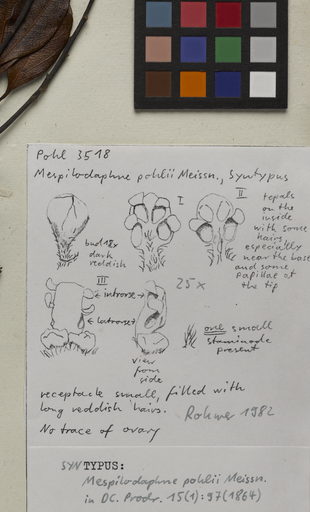 Pohl 3518
Mespilodaphne pohlii Meissn., Syntypus
I
II
tepals
on the
inside
with some
hairs,
especially
near the base
and some
papillae at
the tip
bud 18x
dark
reddish
III
introrse
25x
latrorse
one small
staminode
present
view
from
side
receptacle small, filled with
long reddish hairs.
Rohwer 1982
No trace of ovary
SYNTYPUS:
Mespilodaphne pohlii Meissn.
in DC. Prodr. 15(1):97(1864)